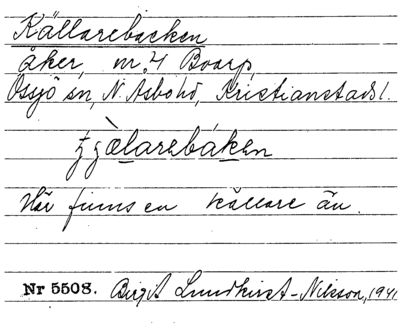 Källarebacken
åker, nr 4 Boarp,
Össjö sn, N. Åsbo hd, Kristianstads l.
Här finns en källare än.
Nr 5508. Birgit Lundkvist-Nilsson, 1941